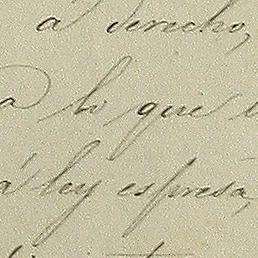 a derecho,
a lo que
á ley espresa,